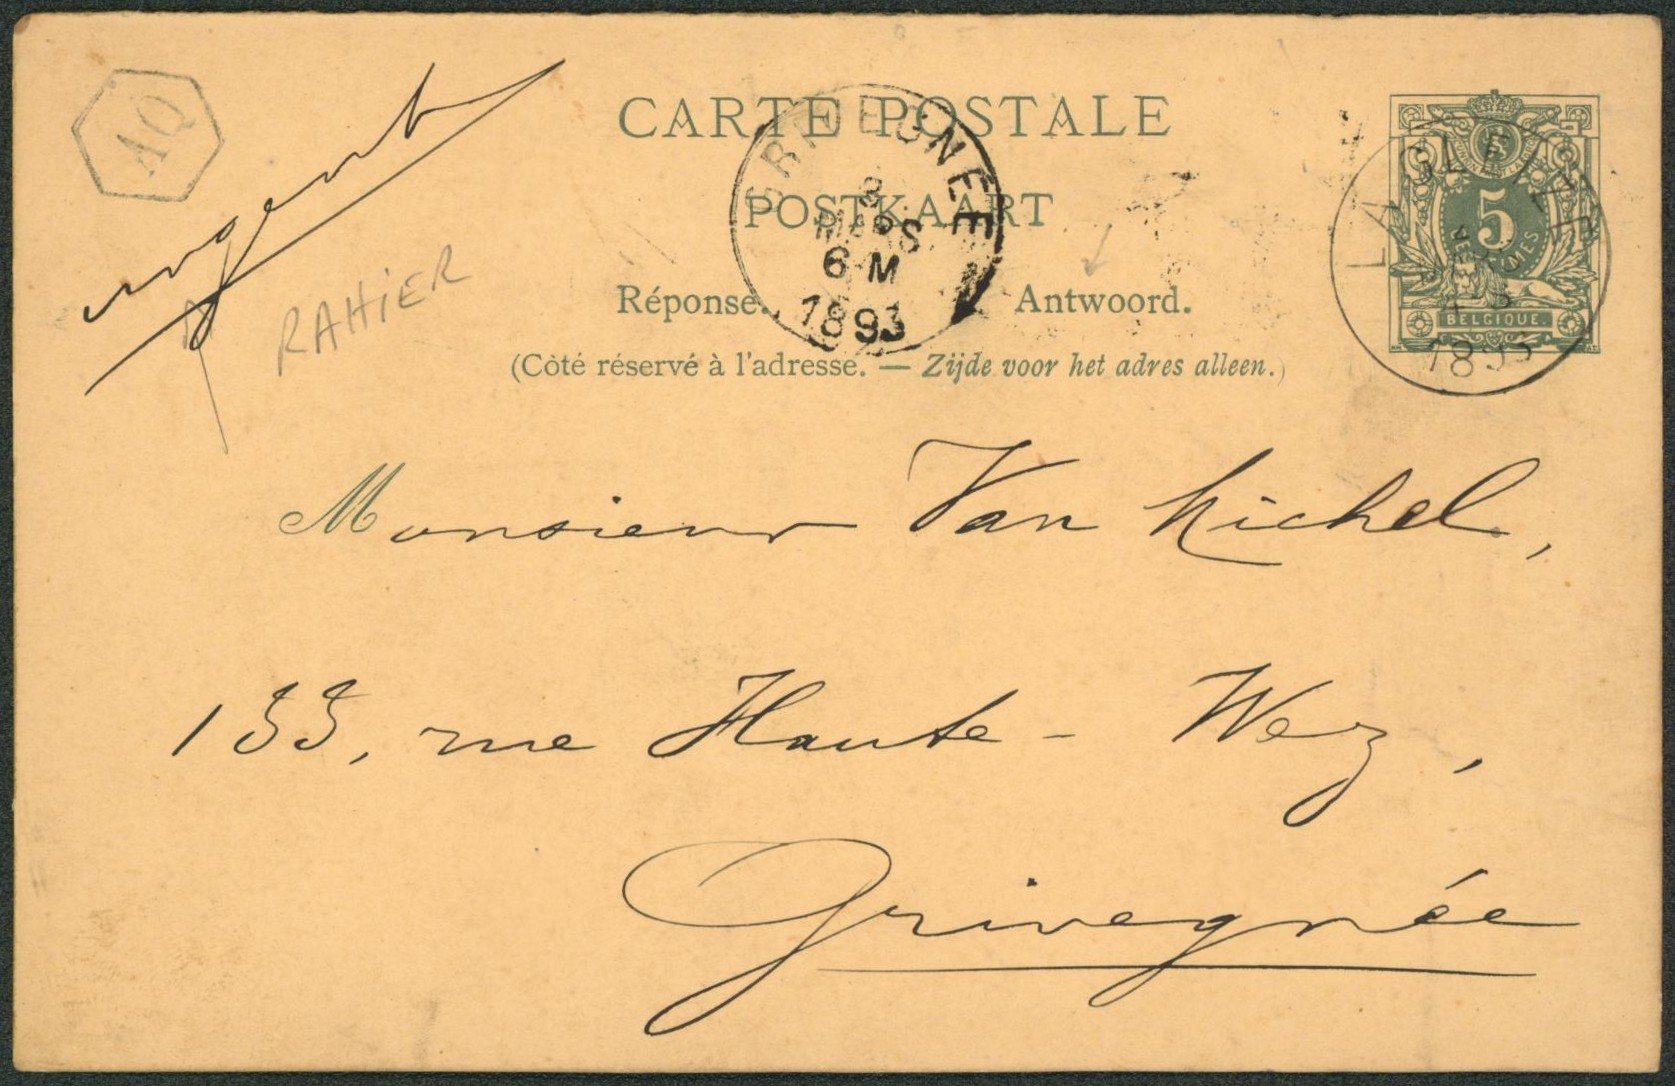 AQ
urgent
RAHIER
CARTE POSTALE
POSTKAART
Réponse. Antwoord.
(Côté réservé à l'adresse. — Zijde voor het adres alleen.)
GRIVEGNÉE
3
MARS
6-M
1893
LAGLEIZE
4-5
1893
5
CENTIMES
BELGIQUE
Monsieur Van Michel,
133, rue Haute-Wez,
Grivegnée